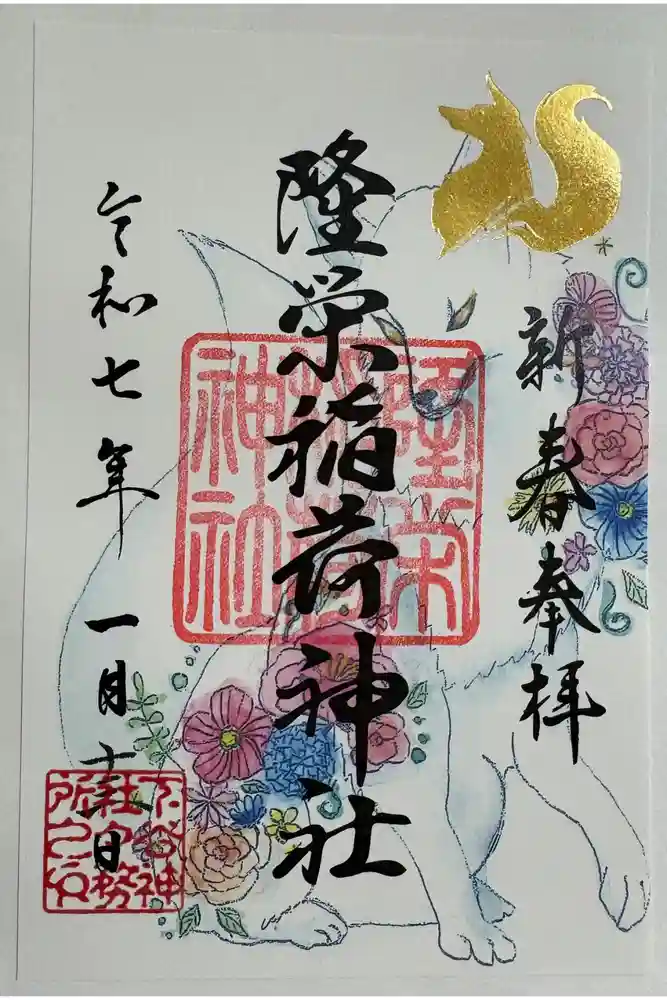 新春奉拝
隆栄稲荷神社
令和七年一月十日
隆栄
稲荷
神社
下谷神
社社務
所之印